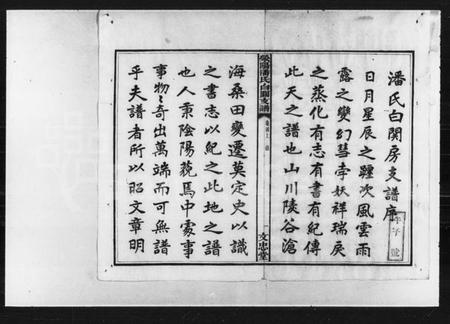 潘氏白閔房支譜序
日月星辰之躔次風雲雨
露之變幻彗孛妖祥瑞戾
之蒸化有志有書有紀傳
此天之譜也山川陵谷滄
滎陽潘氏白閔支譜
文忠堂
海桑田變遷莫定史以識
之書志以紀之此地之譜
也人秉陰陽藐焉中處事
事物〻奇出萬端而可無譜
乎夫譜者所以昭文章明
字號